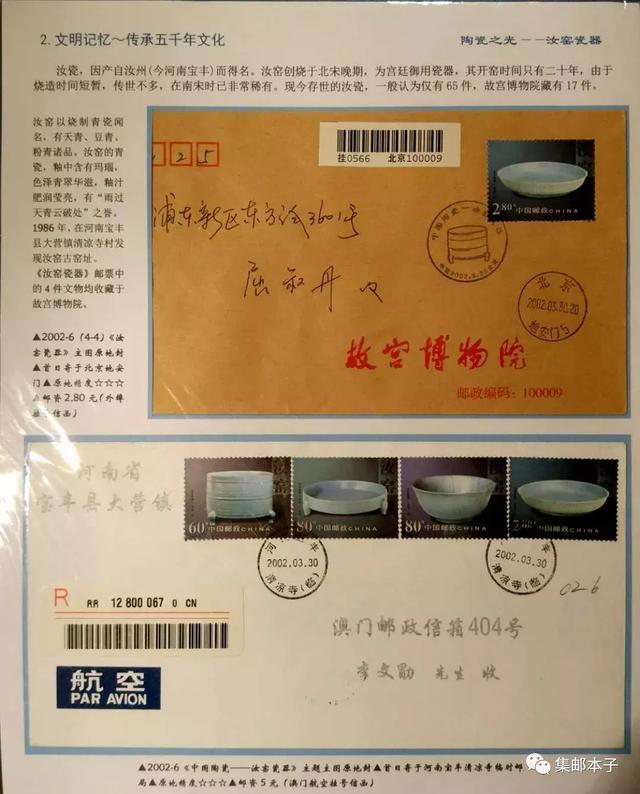 2. 文明记忆～传承五千年文化
陶瓷之光——汝窑瓷器
汝瓷，因产自汝州(今河南宝丰)而得名。汝窑创烧于北宋晚期，为宫廷御用瓷器，其开窑时间只有二十年，由于
烧造时间短暂，传世不多，在南宋时已非常稀有。现今存世的汝瓷，一般认为仅有 65 件，故宫博物院藏有 17 件。
汝窑以烧制青瓷闻
名，有天青、豆青、
粉青诸品。汝窑的青
瓷，釉中含有玛瑙，
色泽青翠华滋，釉汁
肥润莹亮，有“雨过
天青云破处”之誉。
1986 年，在河南宝丰
县大营镇清凉寺村发
现汝窑古窑址。
《汝窑瓷器》邮票中
的 4 件文物均收藏于
故宫博物院。
▲2002-6 (4-4)《汝
窑瓷器》主图原地封
▲首日寄于北京地安
门▲原地精度☆☆☆
▲邮资 2.80 元(外埠
挂号信函)
2 5
挂0566 北京100009
2.80元
中国邮政CHINA
浦东新区东方路3601号
2002.3.30
北京
2002.03.30.20
地安门5
故宫博物院
邮政编码：100009
河南省
宝丰县大营镇
汝窑
60分 中国邮政CHINA
80分 中国邮政CHINA
80分 中国邮政CHINA
2.80元 中国邮政CHINA
2002.03.30
清凉寺(临)
2002.03.30
清凉寺(临)
02-6
R RR 12 800 067 0 CN
澳门邮政信箱404号
李文勋 先生 收
航空
PAR AVION
▲2002-6《中国陶瓷——汝窑瓷器》主题主图原地封▲首日寄于河南宝丰清凉寺临时邮
局▲原地精度☆☆☆▲邮资 5 元(澳门航空挂号信函)
集邮本子